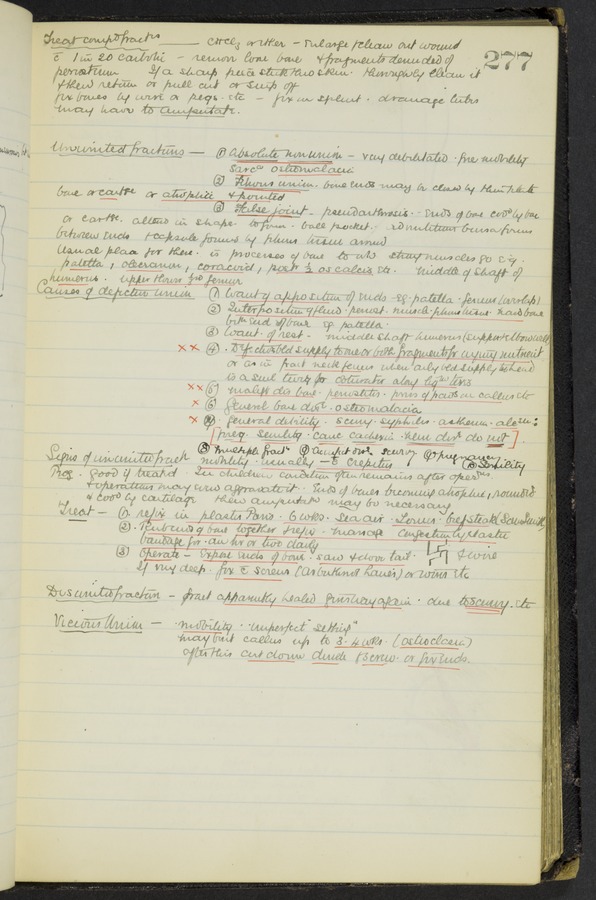 277
Treat comp⁠d fractrs — CHCl3 or ether - Enlarge & clean out wound
c̄ 1 in 20 carbolic - remov loose bone & fragments denuded of
periosteum If a sharp piece stuck thro skin thoroughly clean it
& then return or pull out or snip off
fix bones by wire or pegs etc - fix in splint. drainage tubes
may have to amputate.
Ununited fractures — ① Absolute nonunion - very debilitated. free mobility
sarca osteomalacia
② Fibrous union. bone ends may be closed by thin plate
bone or cartge or atrophic & pointed
③ False joint - pseudarthrosis. Ends of bone covd by bone
or cartge. altered in shape to form ball socket.
between ends & capsule formed by fibrous tissue around
Usual place for these. is processes of bone to wh strong muscles go e.g.
patella, olecranon, coracoid, post ⅓ os calcis etc. Middle of shaft of
humerus. upper third femur
Causes of defective union ① Want of apposition of ends. eg patella. femur (overlap)
② Interposition of fluid. periost. muscle. fibrous tissue
both ends of bone eg patella
③ Want of rest - middle shaft humerus (support elbow well)
×× ④. Defective bld supply to one or both fragments
or as in fract neck femur when only bld supply to head
is a small twig fr obturator along ligm teres
×× ⑤ malign dis bone. periostitis. press of pads on callus etc
× ⑥ General bone dist. osteomalacia
× ⑦. General debility. scurvy syphilis. asthenia. alco
[preg. senility. canc cachexia. nerv dist do not].
⑧ multiple fract ⑨ Amput scurvy pregnancy Senility
Signs of ununited fract mobility. usually c̄ crepitus
Prog. Good if treatd. In children condition often remains after opertns
& operations may even aggravate it. Ends of bones becoming atrophied, rounded
& covd by cartilage then amputate may be necessary
Treat - ① refix in plaster Paris. 6 wks. Sea air. Tonics. beefsteaks
②. Rub ends of bone together & refix. massage Congestion by elastic
bandage for an hr or two daily
③ Operate - Expose ends of bone. saw & dove tail. & wire
If very deep. fix c̄ screws (Arbuthnot Lane's) or wires etc
Disunited fraction - fract apparently healed gives way again. due to scurvy. etc
Vicious Union - mobility. "imperfect setting"
may bend callus up to 3-4 wks. (osteoclasia)
after this cut down divide & screw or fix ends.